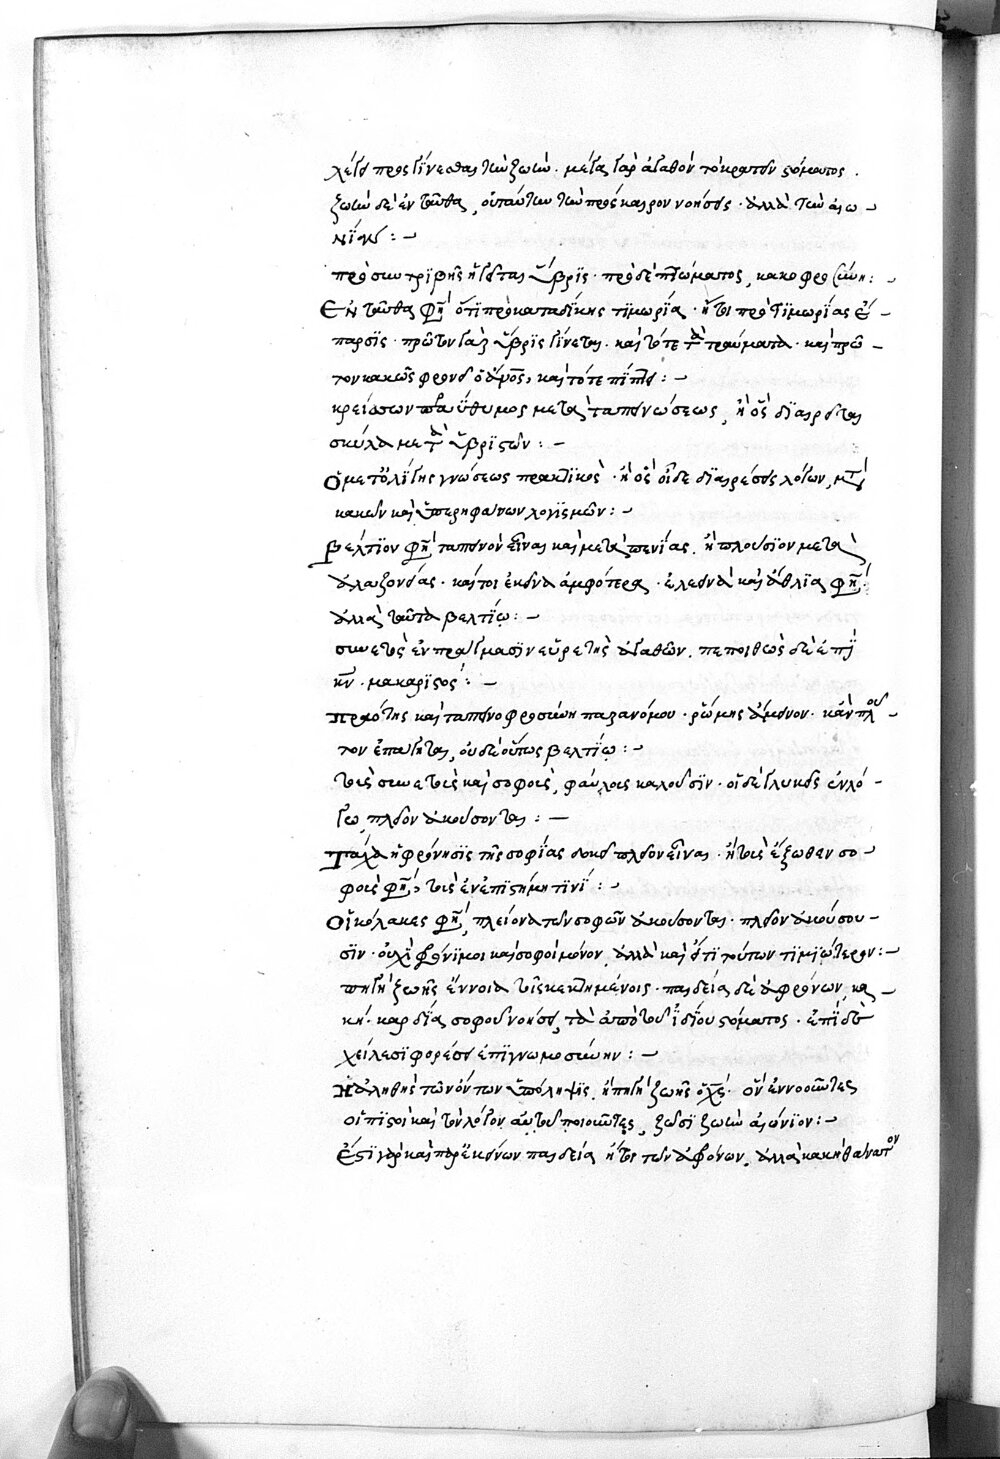 λέγει προσγίνεσθαι τὴν ζωήν. μέγα γὰρ ἀγαθὸν τὸ κρατεῖν στόματος.
ζωὴν δὲ ἐνταῦθα, οὐ ταύτην τὴν πρόσκαιρον νοήσεις. ἀλλὰ τὴν αἰω
νΐαν :
πρὸ συντρϊβῆς ἡγεῖται ὕβρϊς. πρὸ δὲ πτώματος, κακοφροσύνη:
Ενταῦθα φησὶ ὅτϊ πρὸ καταδίκης τϊμωρία. ἤτοι πρὸ τϊμωρίας ἔ
παρσϊς. πρῶτον γὰρ ὕβρϊς γίνεται. καὶ τότε τὰ τραύματα. καὶ πρῶ
τον κακῶς φρονεῖ ὁ ἄνος, καὶ τότε πίπτει :
κρείσσων πραΰθυμος μετὰ ταπεινώσεως, ἢ ὃς δϊαιρεῖται
σκύλα μετὰ ὑβρϊστῶν :
Ὁ μετ᾽ ὀλϊγης γνώσεως πρακτϊκὸς. ἢ ὃς οἶδε δϊαιρέσεις λόγων, μετὰ
κακῶν καὶ ὑπερηφάνων λογϊσμῶν :
Βέλτϊον φησὶ ταπεινὸν εἶναι καὶ μετὰ πενίας. ἢ πλούσϊον μετὰ
ἀλαζονείας. καίτοι ἐκεῖνα ἀμφότερα. ἐλεεινὰ καὶ ἄθλϊα φησὶ.
ἀλλὰ ταῦτα βελτΐω :
συνετὸς ἐν πράγμασϊν εὑρετὴς ἀγαθῶν. πεποιθὼς δὲ ἐπὶ
κῶ. μακαρϊστὸς :
πραότης καὶ ταπεινοφροσύνη παρανόμου. ῥώμης ἄμεινον. κἂν πλοῦ
τον ἐπάγηται, οὐδὲ οὕτως βελτΐω :
τοὺς συνετοὺς καὶ σοφοὺς, φαύλους καλοῦσϊν. οἱ δὲ γλυκεῖς ἐν λό
γω, πλεῖον ἀκούσονται :
Τάχα ἡ φρόνησϊς τῆς σοφίας δοκεῖ πλεῖον εἶναι. ἢ τοὺς ἔξωθεν σο
φοὺς φησὶ, τοὺς ἐν ἐπϊστήμη τϊνΐ :
Οἱ κόλακες φησὶ, πλείονα τῶν σοφῶν ἀκούσονται. πλεῖον ἀκούσου
σϊν. οὐχὶ φρόνϊμοι καὶ σοφοὶ μόνον, ἀλλὰ καὶ ἔτϊ τούτων τϊμϊώτερον:
πηγὴ ζωῆς ἔννοια τοῖς κεκτημένοις. παιδεία δὲ ἀφρόνων, κα
κή. καρδία σοφοῦ νοήσει, τὰ ἀπὸ τοῦ ἰδΐου στόματος. ἐπὶ δὲ
χείλεσϊ φορέσει ἐπϊγνωμοσύνην :
Ἡ ἀληθὴς τῶν ὄντων ὑπόληψϊς, ἡ πηγὴ ζωῆς ὁ χς. ὃν ἐννοοῦντες
οἱ πϊστοὶ καὶ τὸν λόγον αὐτοῦ ποιοῦντες, ζῶσϊ ζωὴν αἰώνϊον :
Ἔστϊ γὰρ καὶ παρ᾽ ἐκείνων παιδεία ἤτοι τῶν ἀφρόνων, ἀλλὰ κακὴ θάνατον